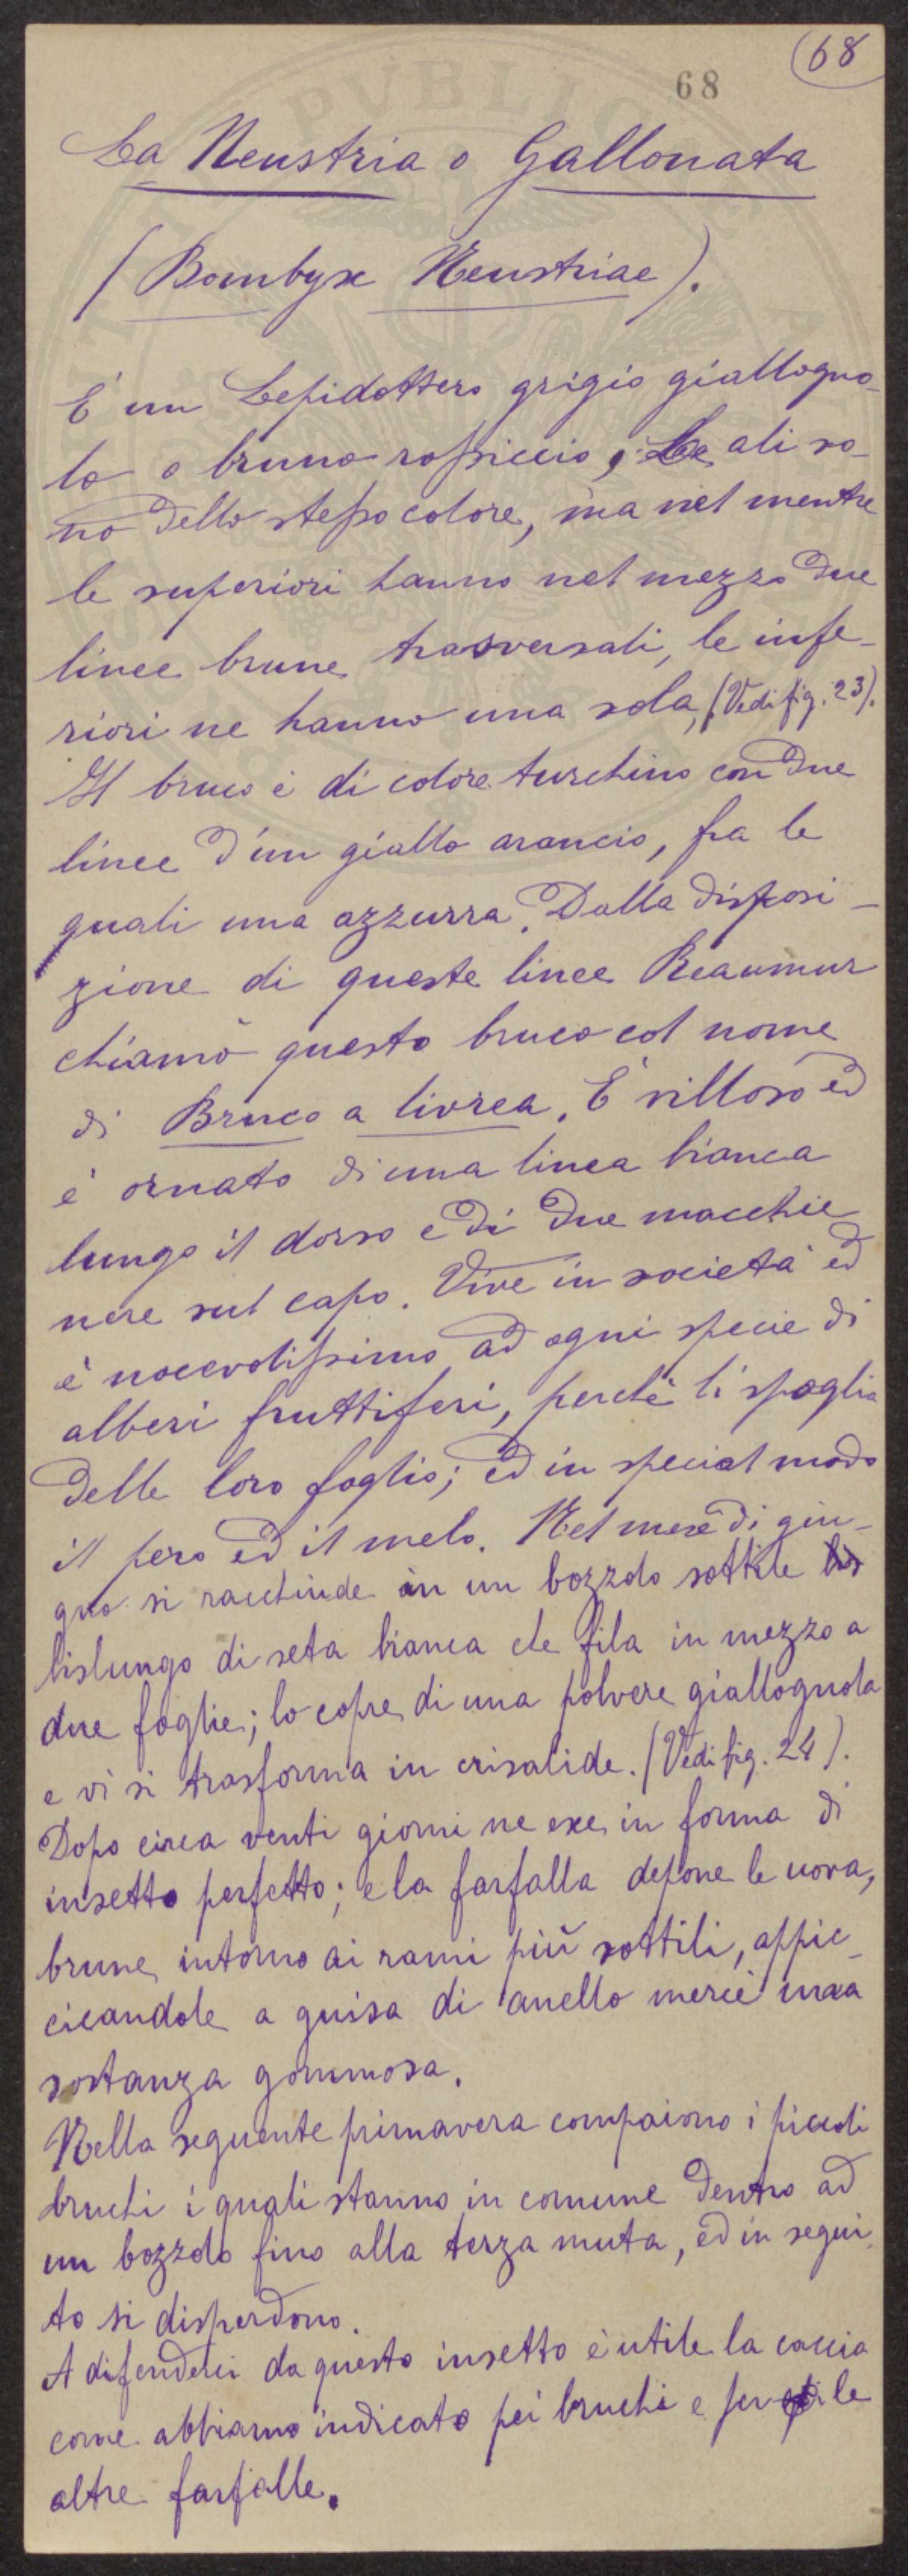 68
(68
La Neustria o Gallonata
(Bombyx Neustriae).
É un Lepidottero grigio giallogno-
lo o bruno rossiccio, le ali so-
no dello stesso colore, ma nel mentre
le superiori hanno nel mezzo due
linee brune trasversali, le infe-
riori ne hanno una sola, (Vedi fig. 23).
Il bruco è di colore turchino con due
linee d'un giallo arancio, fra le
quali una azzurra. Dalla disposi-
zione di queste linee Reaumur
chiamò questo bruco col nome
di Bruco a livrea. É villoso ed
è ornato di una linea bianca
lungo il dorso e di due macchie
nere sul capo. Vive in società ed
è nocevolissimo ad ogni specie di
alberi fruttiferi, perchè li spoglia
delle loro foglie; ed in special modo
il pero ed il melo. Nel mese di giu-
gno si racchiude in un bozzolo sottile
bislungo di seta bianca che fila in mezzo a
due foglie; lo copre di una polvere giallognola
e vi si trasforma in crisalide. (Vedi fig. 24).
Dopo circa venti giorni ne esce in forma di
insetto perfetto; e la farfalla depone le uova,
brune intorno ai rami più sottili, appic-
cicandole a guisa di anello mercè una
sostanza gommosa.
Nella seguente primavera compaiono i piccoli
bruchi i quali stanno in comune dentro ad
un bozzolo fino alla terza muta, ed in segui-
to si disperdono.
A difenderci da questo insetto è utile la caccia
come abbiamo indicato pei bruchi e per le
altre farfalle.